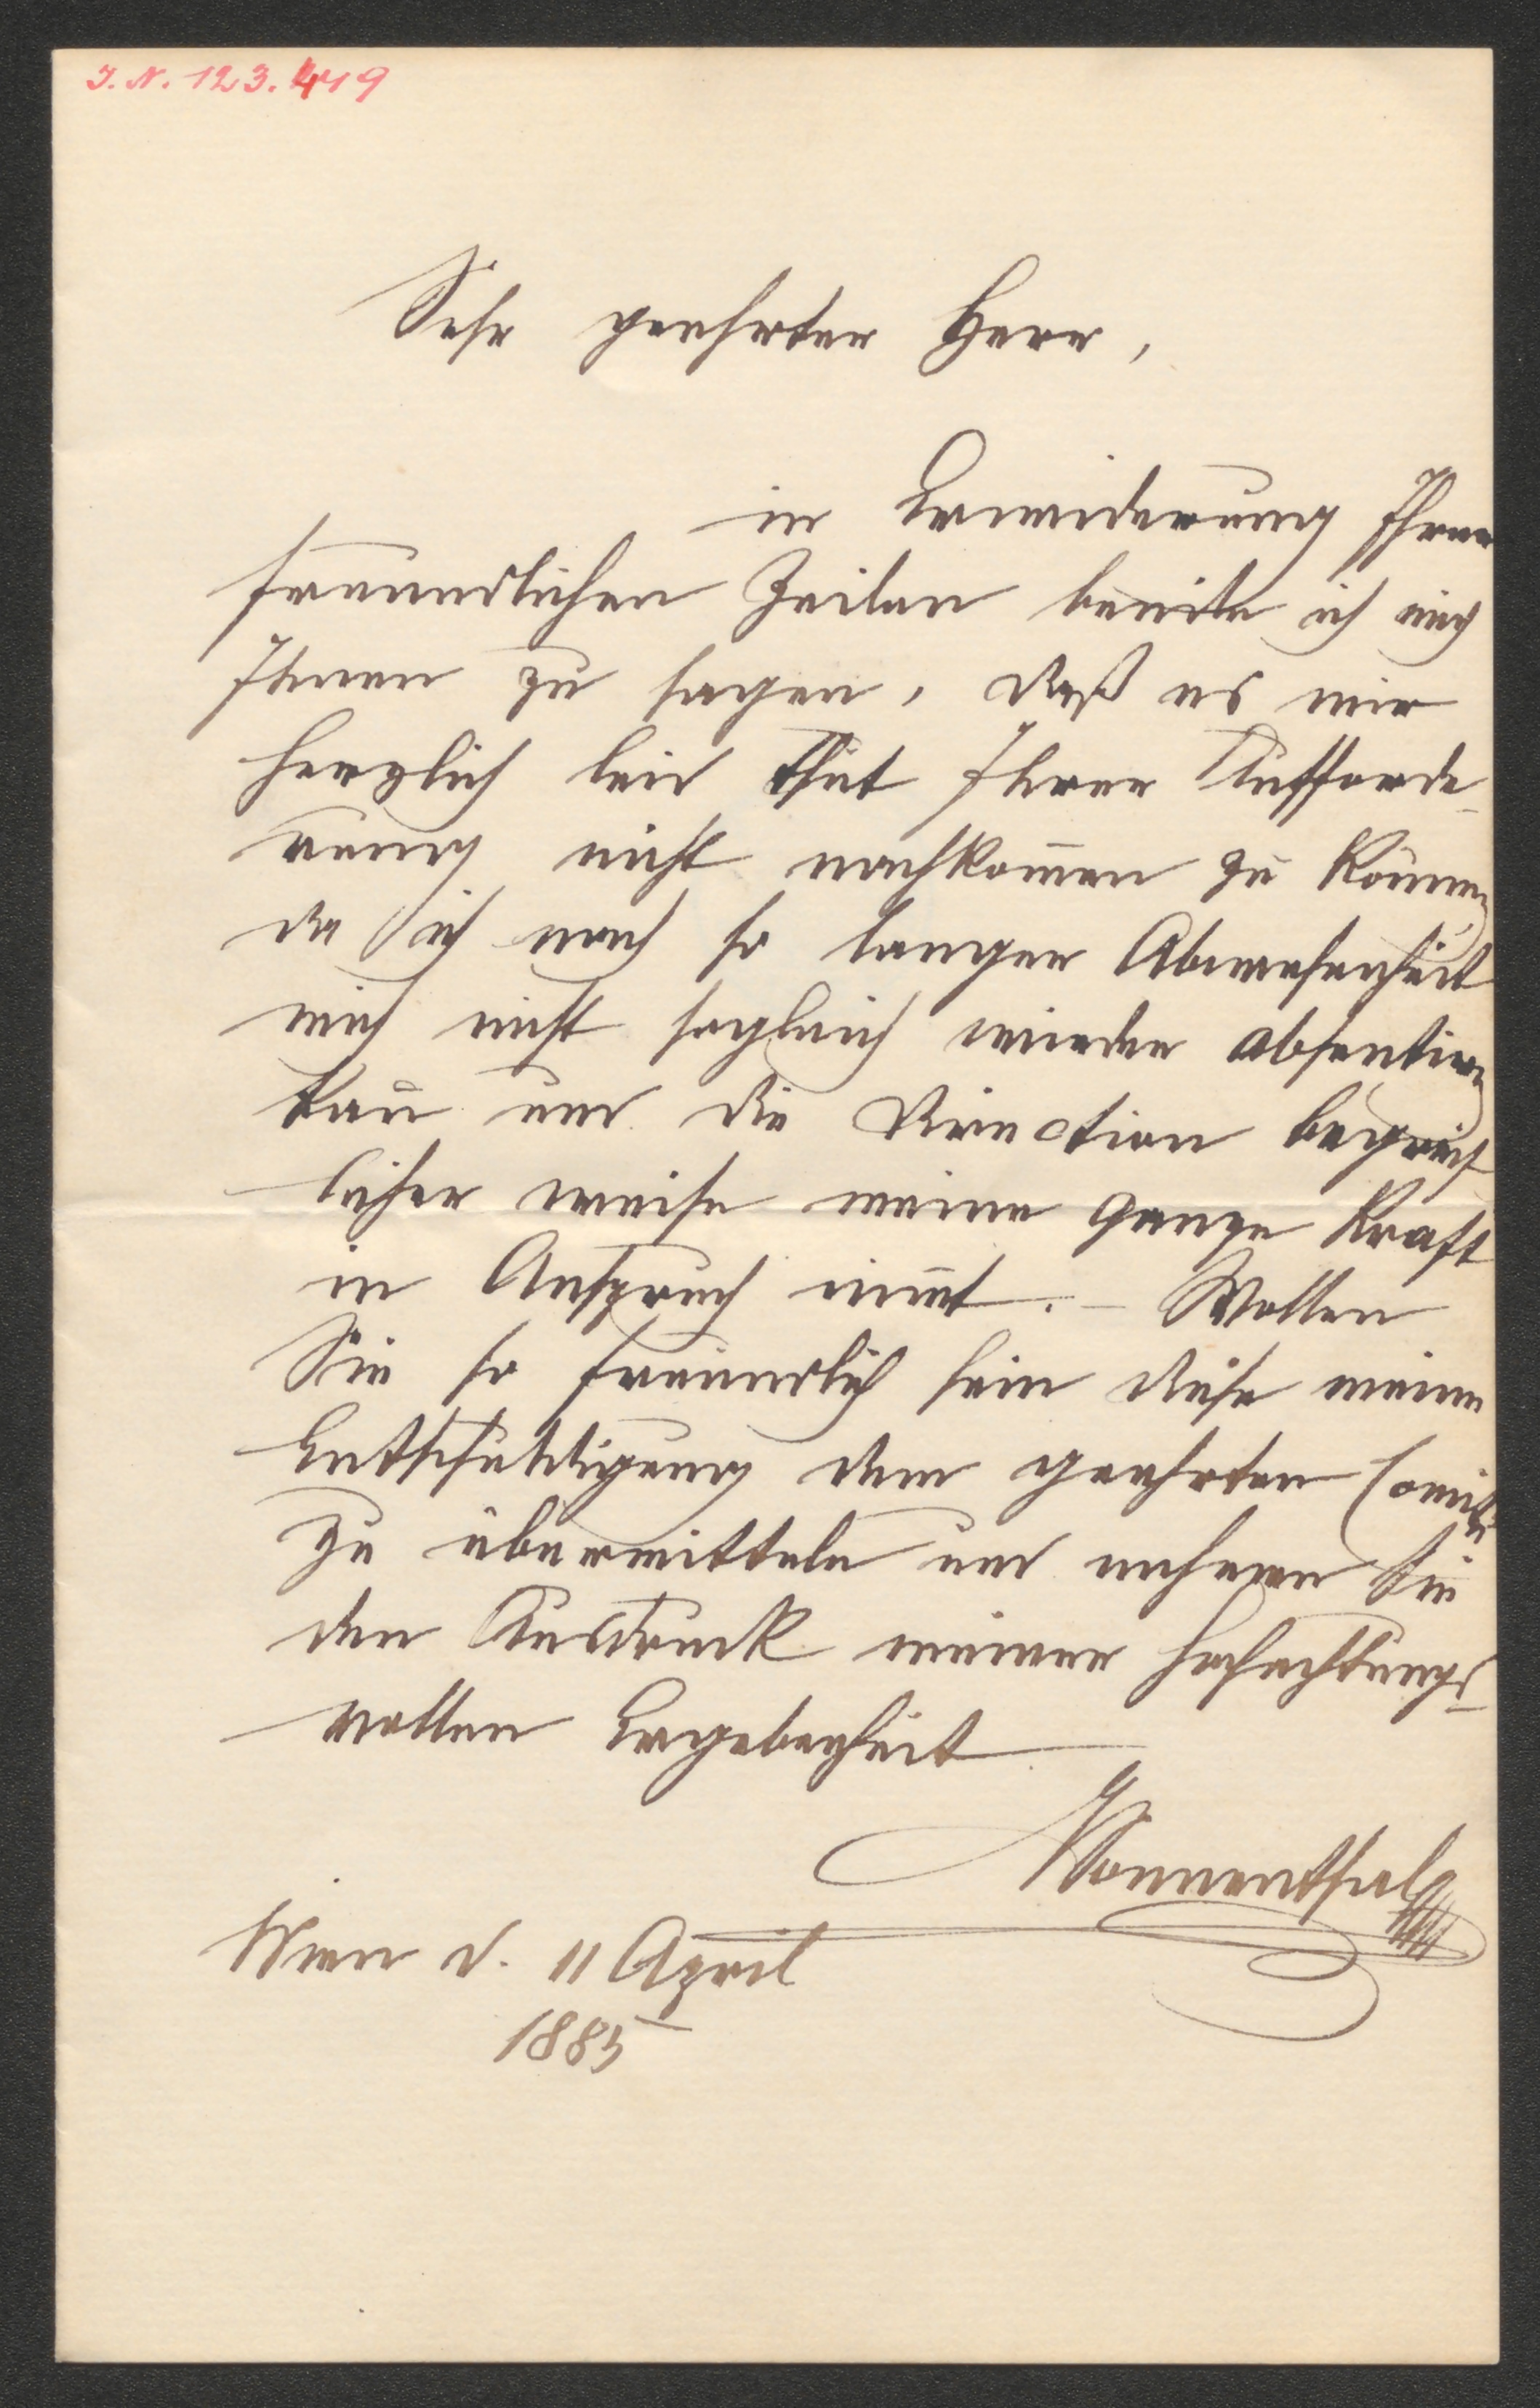 J. N. 123.419
Sehr geehrter Herr,
in Erwiderung Ihrer
freundlichen Zeilen beeile ich mich
Ihnen zu sagen, daß es mir
herzlich leid thut Ihrer Aufforde-
rung nicht nachkom̄en zu können
da ich nach so langer Abwesenheit
mich nicht sogleich wieder absentiren
kan̄ und die Direction begreif-
licher weise meine ganze Kraft
in Anspruch nim̄t. – Wollen
Sie so freundlich sein diese meine
Entschuldigung dem geehrten Comité
zu übermitteln und nehmen Sie
den Ausdruck meiner hochachtungs-
vollen Ergebenheit
Sonnenthal
Wien d. 11 April
1885